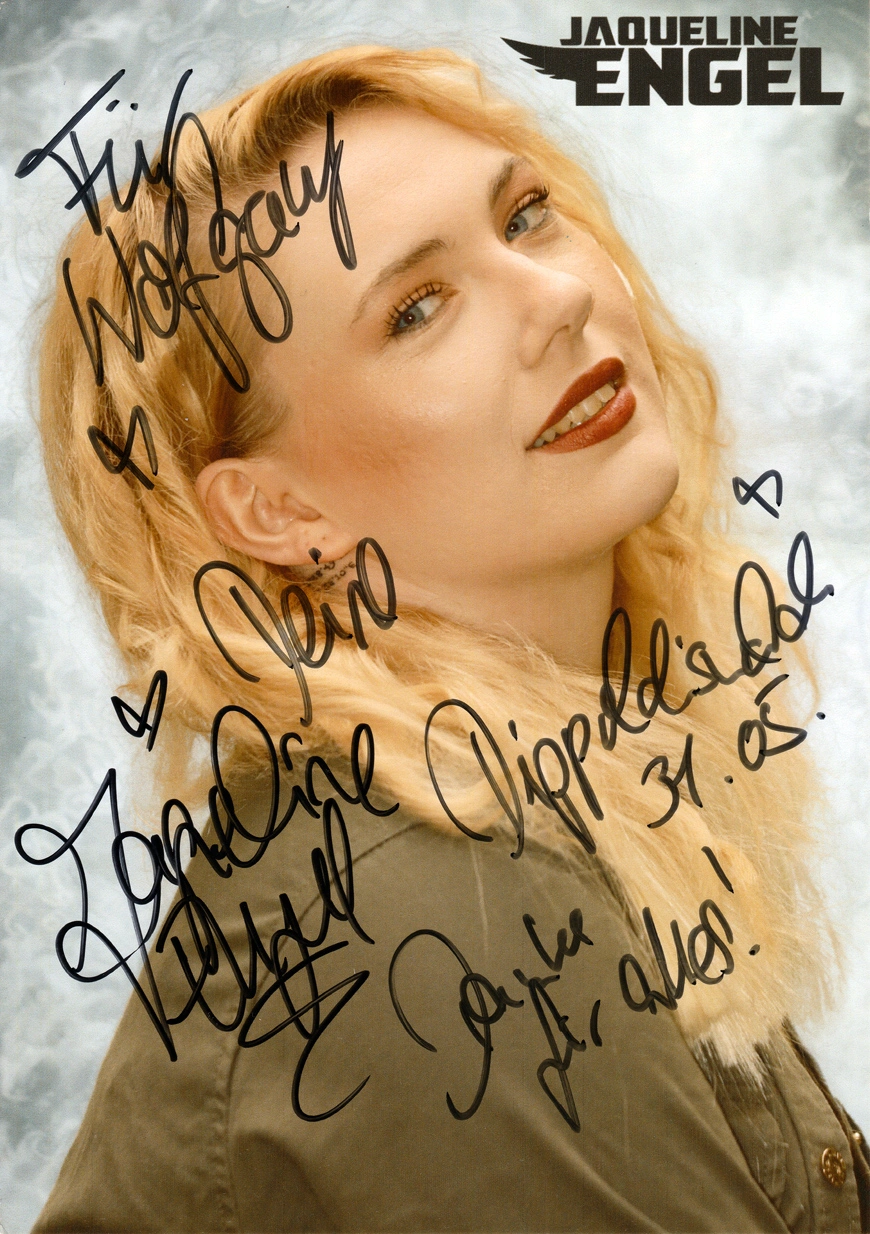 JAQUELINE
ENGEL
Für
Wolfgang
Deine
Jaqueline
Engel
Dippoldiswalde
31.05.
Danke
für alles!